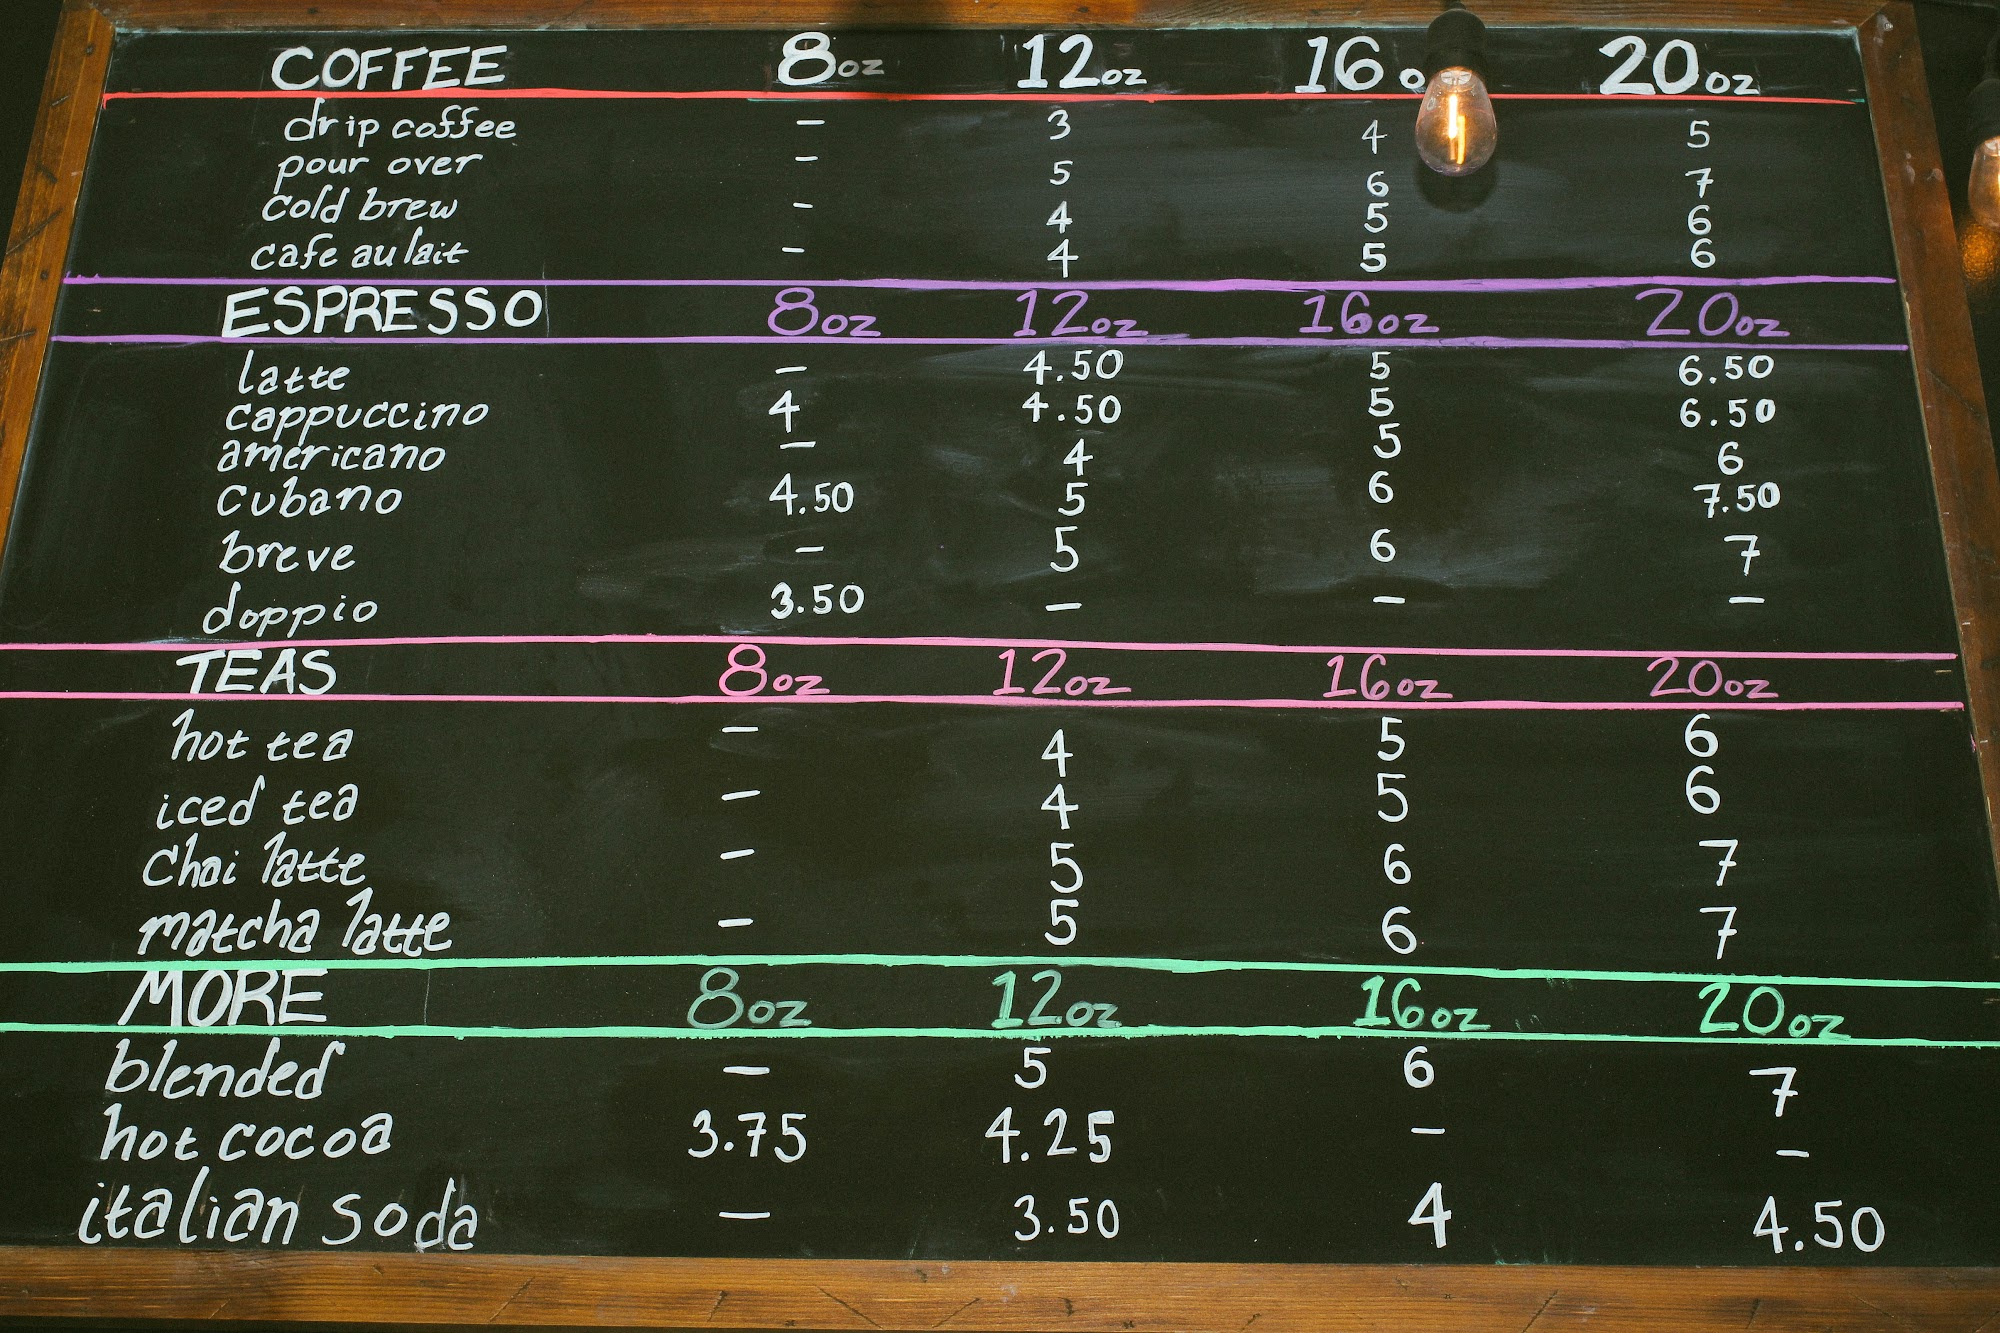 COFFEE 8oz 12oz 16o 20oz
drip coffee – 3 4 5
pour over – 5 6 7
cold brew – 4 5 6
cafe au lait – 4 5 6
ESPRESSO 8oz 12oz 16oz 20oz
latte – 4.50 5 6.50
cappuccino 4 4.50 5 6.50
americano – 4 5 6
cubano 4.50 5 6 7.50
breve – 5 6 7
doppio 3.50 – – –
TEAS 8oz 12oz 16oz 20oz
hot tea – 4 5 6
iced tea – 4 5 6
Chai latte – 5 6 7
matcha latte – 5 6 7
MORE 8oz 12oz 16oz 20oz
blended – 5 6 7
hot cocoa 3.75 4.25 – –
italian soda – 3.50 4 4.50